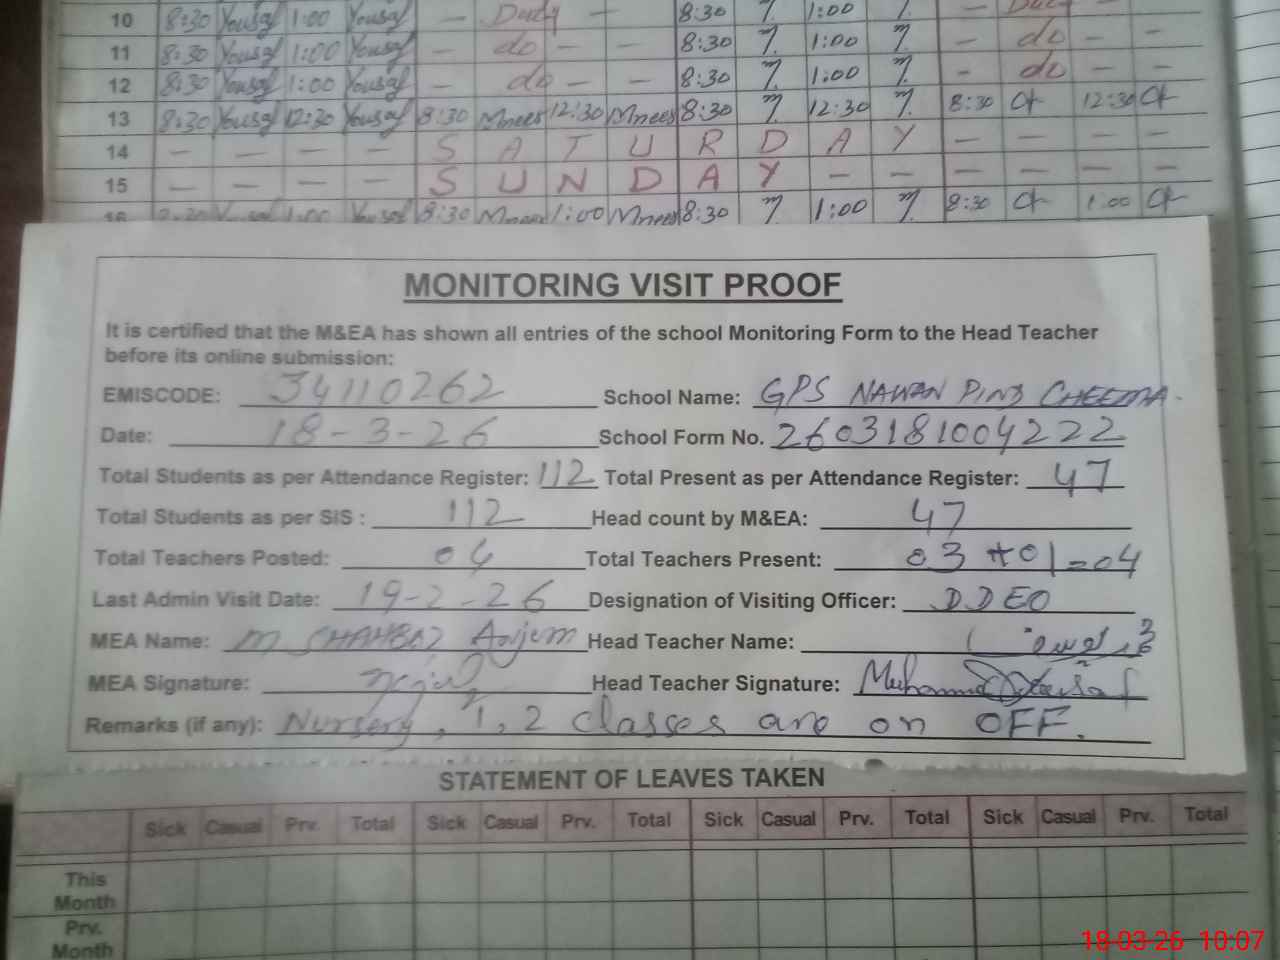 10 8:30 Yousaf 1:00 Yousaf — Duty — 8:30 1:00 — Duty
11 8:30 Yousaf 1:00 Yousaf — do — — 8:30 1:00 — do — —
12 8:30 Yousaf 1:00 Yousaf — do — — 8:30 1:00 — do — —
13 8:30 Yousaf 12:30 Yousaf 8:30 12:30 8:30 12:30 8:30 12:30
14 — — — — S A T U R D A Y — — — —
15 — — — — S U N D A Y — — — — — —
16 8:30 Yousaf 1:00 Yousaf 8:30 1:00 8:30 1:00 8:30 1:00
MONITORING VISIT PROOF
It is certified that the M&EA has shown all entries of the school Monitoring Form to the Head Teacher
before its online submission:
EMISCODE: 34110262 School Name: GPS NAWAN PIND CHEEMA.
Date: 18-3-26 School Form No. 2603181004222
Total Students as per Attendance Register: 112 Total Present as per Attendance Register: 47
Total Students as per SIS : 112 Head count by M&EA: 47
Total Teachers Posted: 04 Total Teachers Present: 03 + 01 = 04
Last Admin Visit Date: 19-2-26 Designation of Visiting Officer: DDEO
MEA Name: M SHAHBAZ Anjum Head Teacher Name:
MEA Signature: Head Teacher Signature: Muhammad Yousaf
Remarks (if any): Nursery, 1, 2 classes are on OFF.
STATEMENT OF LEAVES TAKEN
Sick Casual Prv. Total Sick Casual Prv. Total Sick Casual Prv. Total Sick Casual Prv. Total
This
Month
Prv.
Month
18-03-26 10:07